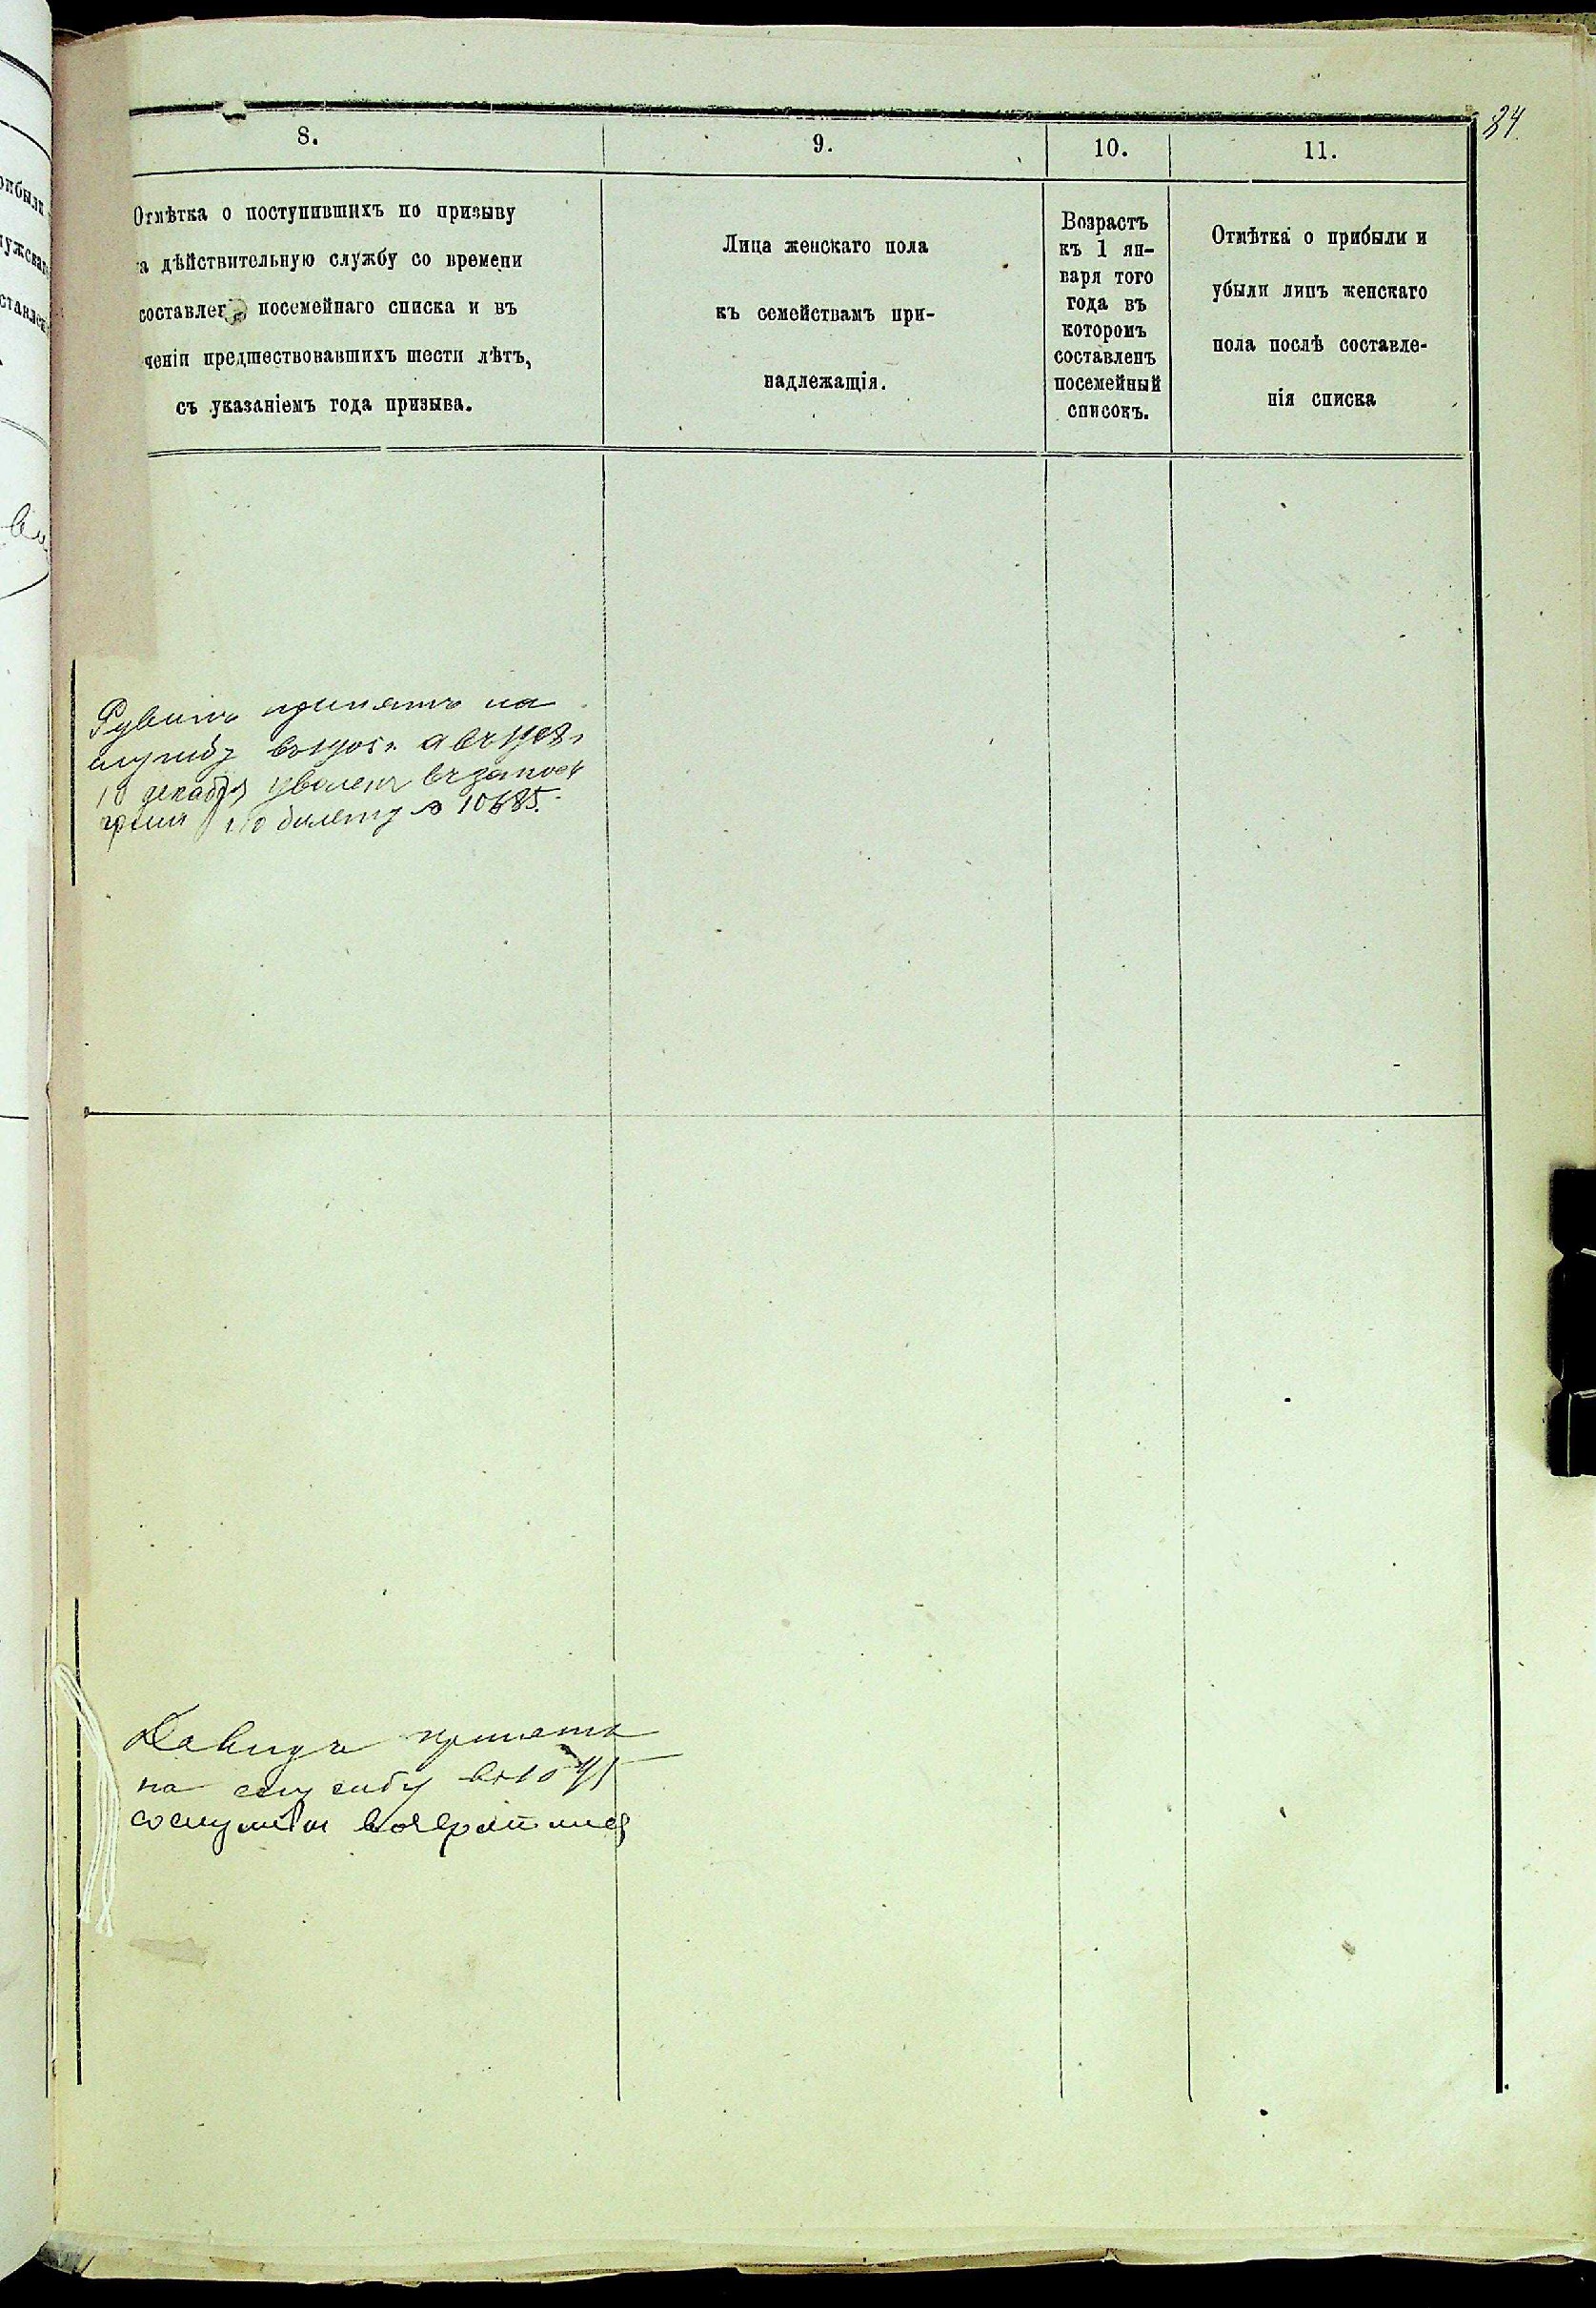 84
8.
9.
10.
11.
Отмѣтка о поступившихъ по призыву
а дѣйствительную службу со времени
составлен посемейнаго списка и въ
ченіи предшествовавшихъ шести лѣтъ,
съ указаніемъ года призыва.
Лица женскаго пола
къ семействамъ при-
надлежащія.
Возрастъ
къ 1 ян-
варя того
года въ
которомъ
составленъ
посемейный
списокъ.
Отмѣтка о прибыли и
убыли лицъ женскаго
пола послѣ составле-
нія списка
Рувинъ принятъ на
службу въ 1905 г. а въ 1908 г
10 декабря уволенъ въ запасъ
арміи по билету № 10685.
Давидъ принятъ
на службу въ
со службы возвратился